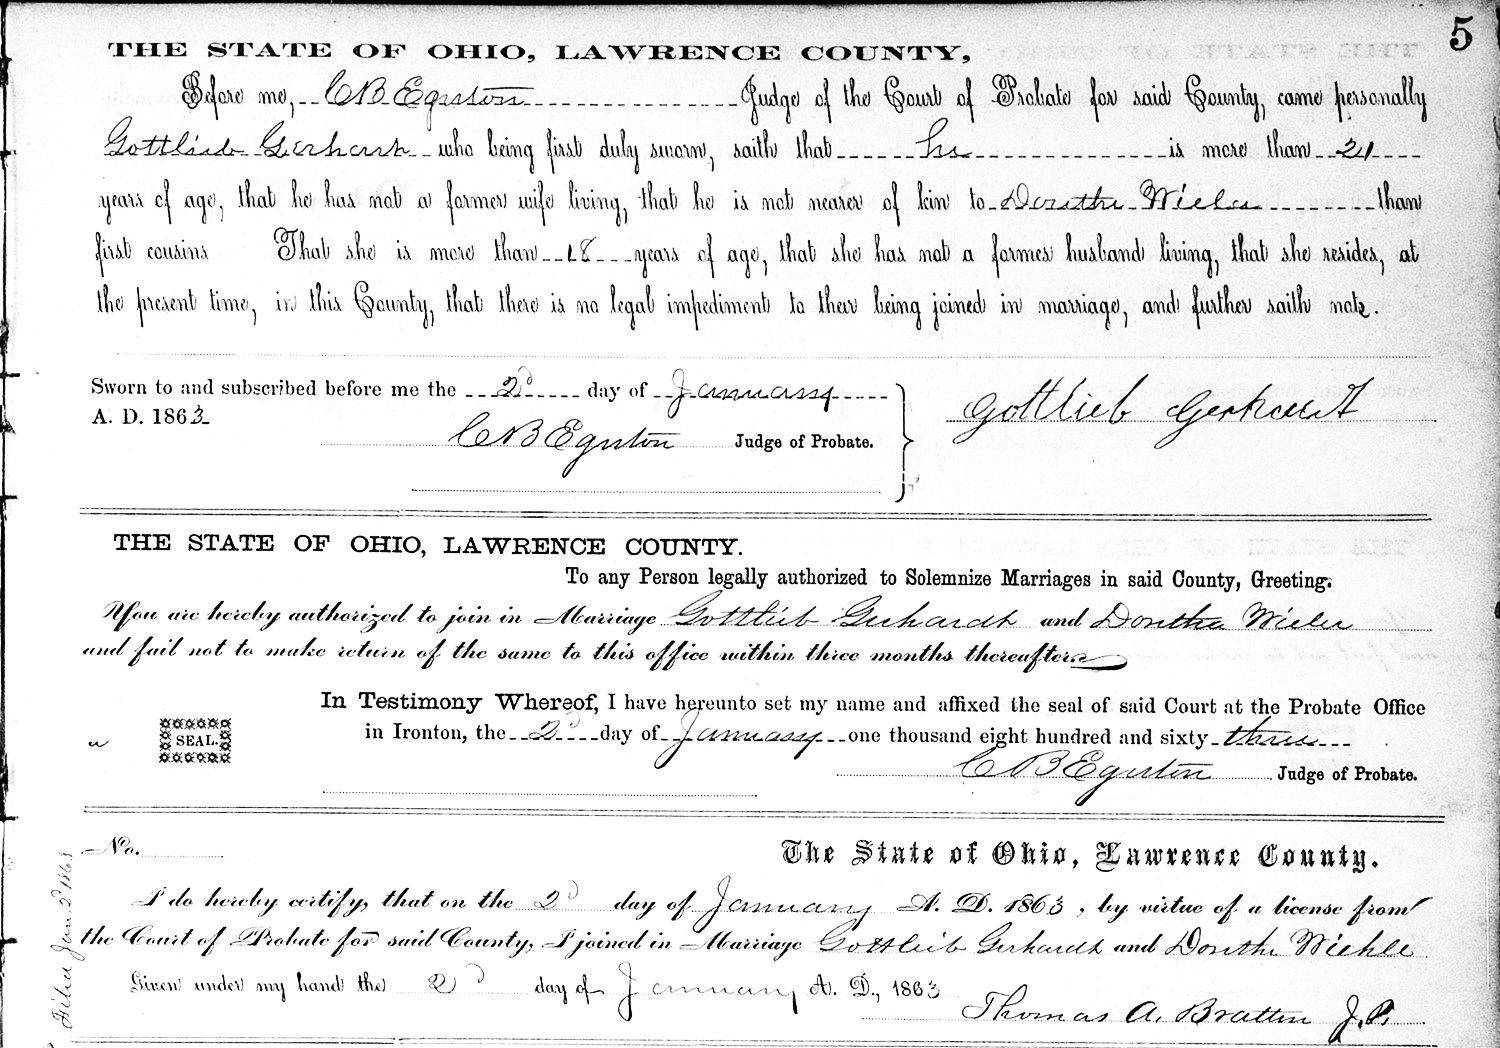 5
THE STATE OF OHIO, LAWRENCE COUNTY,
Before me, C B Egerton Judge of the Court of Probate for said County, came personally
Gottlieb Gerhart who being first duly sworn, saith that he is more than 21
years of age, that he has not a former wife living, that he is not nearer of kin to Dorothe Wieler than
first cousins That she is more than 18 years of age, that she has not a former husband living, that she resides, at
the present time, in this County, that there is no legal impediment to their being joined in marriage, and further saith not.
Sworn to and subscribed before me the 2d day of January
A. D. 1863
Gottlieb Gerhardt
C B Egerton Judge of Probate.
THE STATE OF OHIO, LAWRENCE COUNTY.
To any Person legally authorized to Solemnize Marriages in said County, Greeting:
You are hereby authorized to join in Marriage Gottlieb Gerhardt and Dorothea Wieler
and fail not to make return of the same to this office within three months thereafter.
In Testimony Whereof, I have hereunto set my name and affixed the seal of said Court at the Probate Office
SEAL.
in Ironton, the 2d day of January one thousand eight hundred and sixty three
C B Egerton Judge of Probate.
No.
The State of Ohio, Lawrence County.
I do hereby certify, that on the 2d day of January A. D. 1863, by virtue of a license from
the Court of Probate for said County, I joined in Marriage Gottlieb Gerhardt and Dorothe Wiehle
Given under my hand the 2d day of January A. D., 1863
Thomas A. Bratten J.P.
Filed Jan 2d 1863